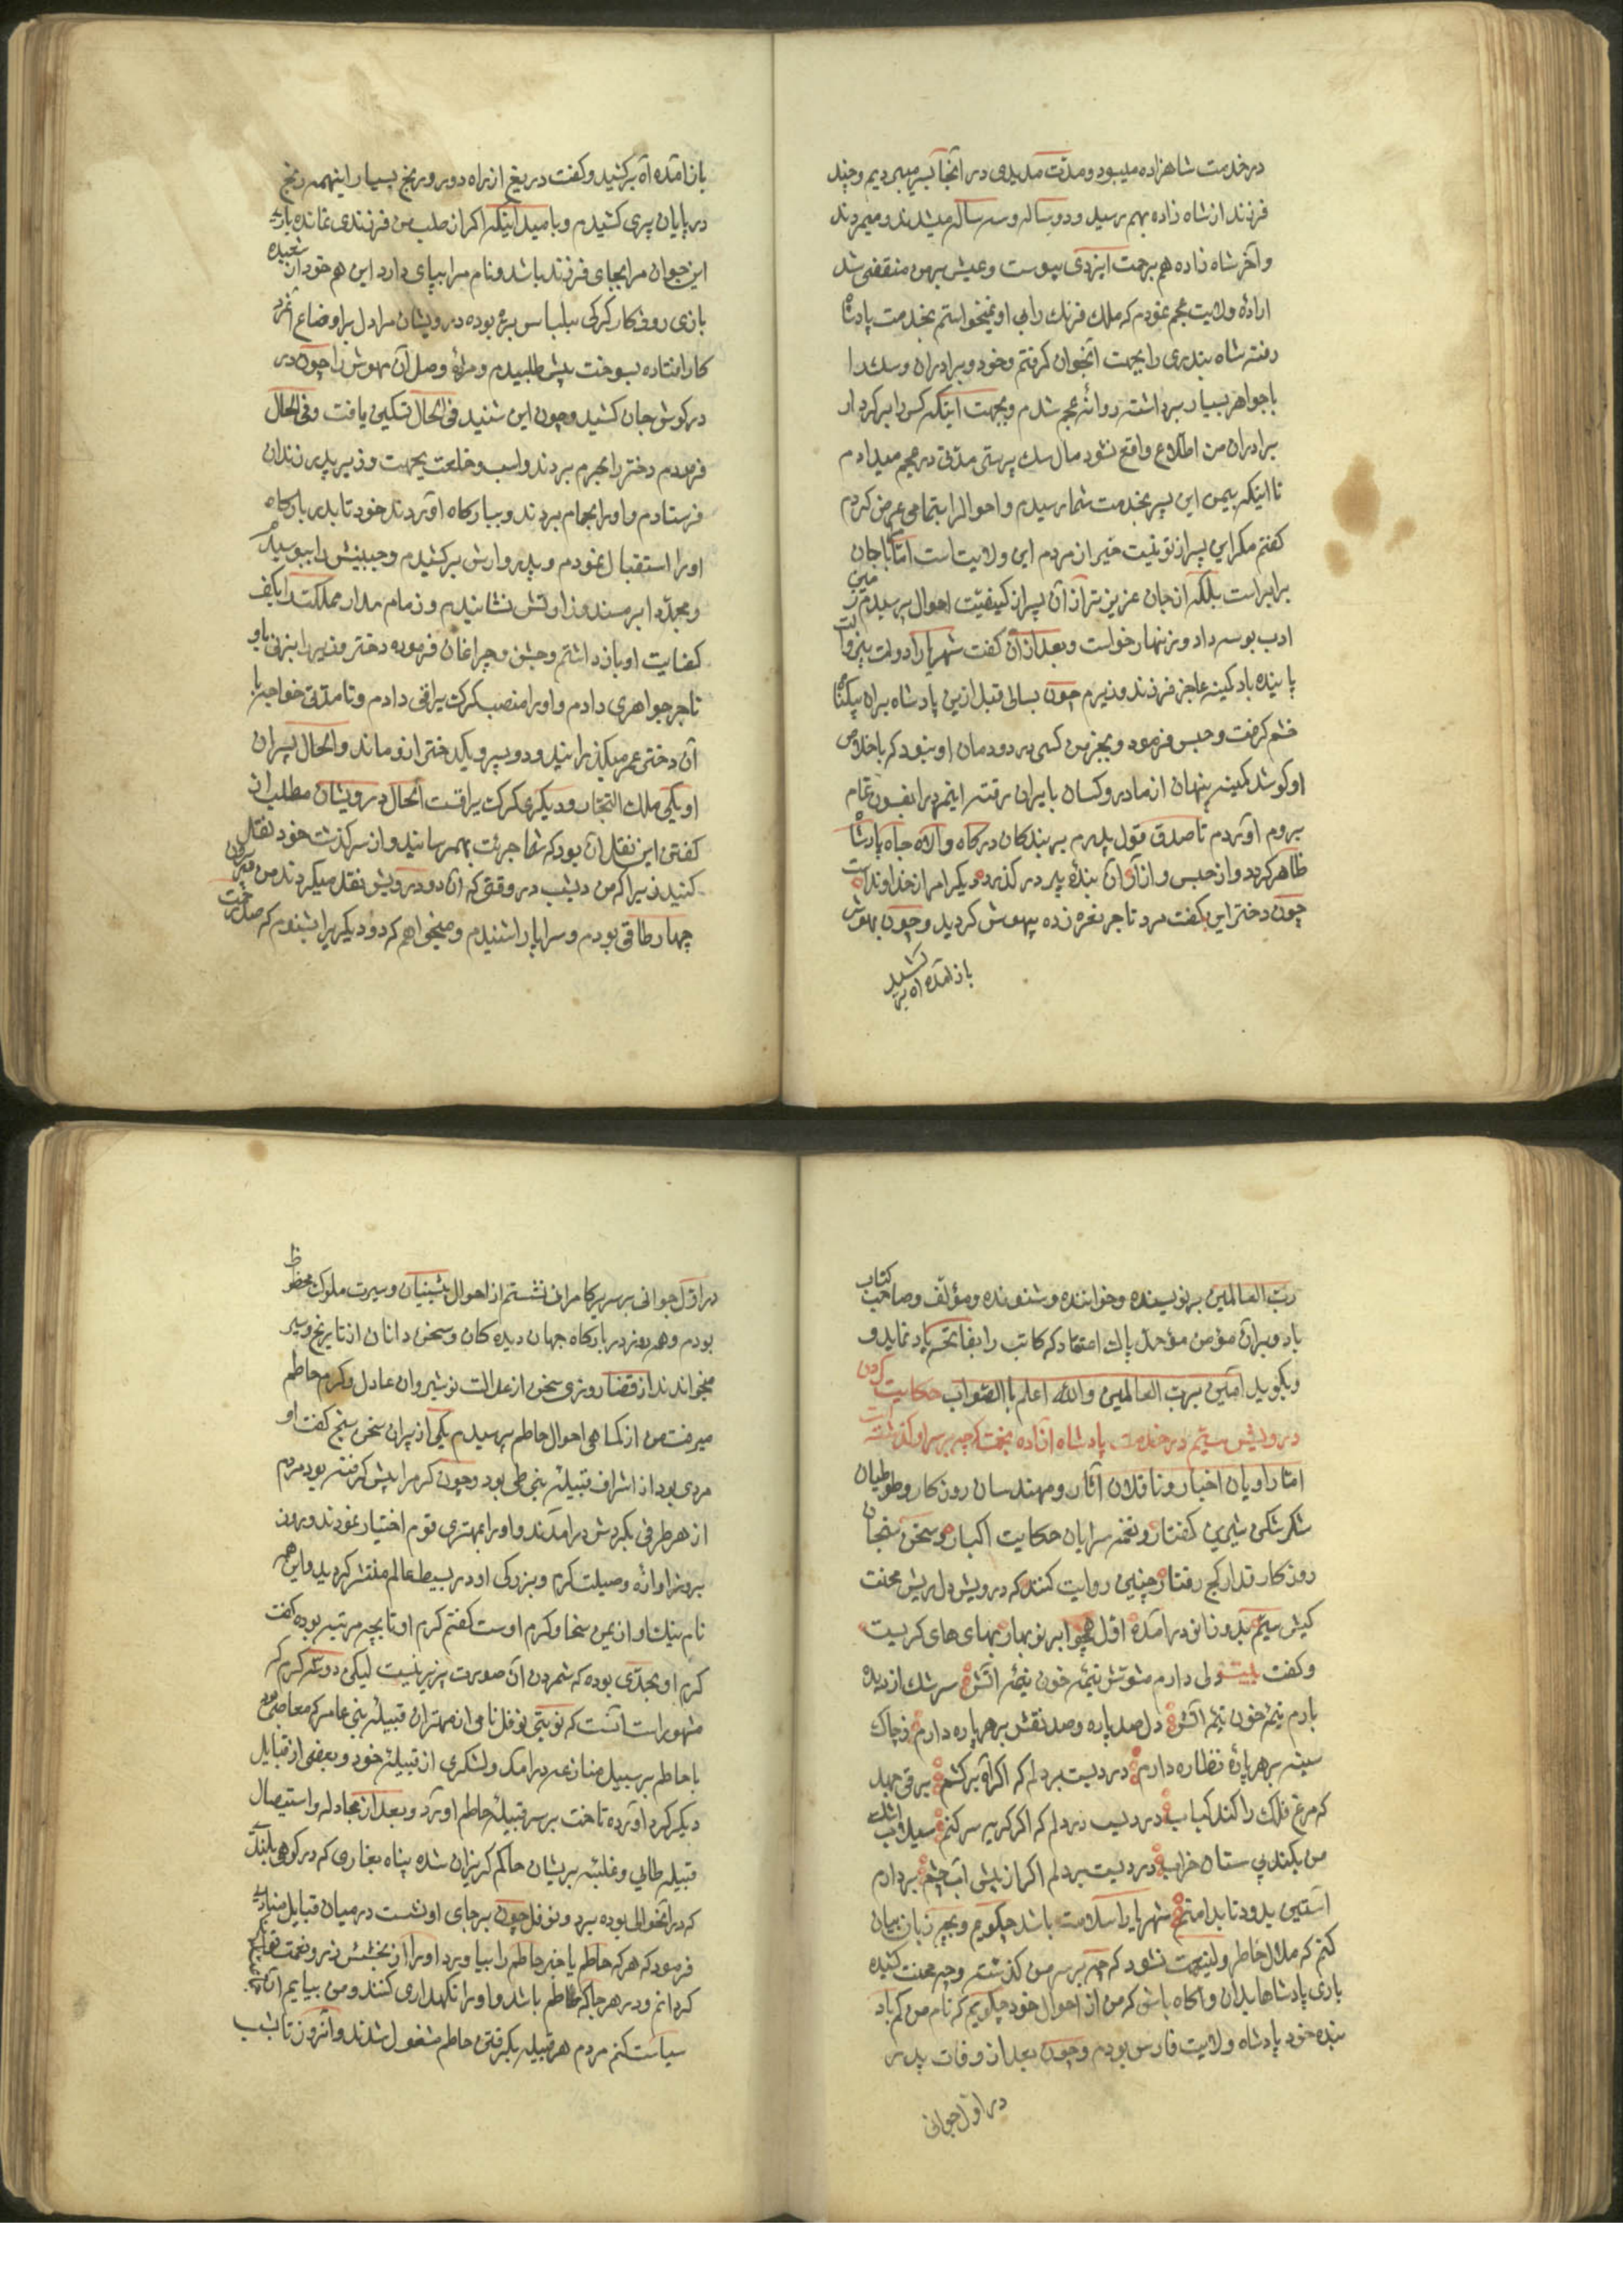 در خدمت شاهزاده میبود و مدّت مدیدی در آنجا بسر میبردیم و چند
فرزند از شاه زاده بهم رسید و دو ساله و سه ساله میشدند و میمردند
و آخر شاه زاده هم برحمت ایزدی پیوست و عیش بر من منقضی شد
اراده ولایت عجم نمودم که ملک فرنک رابی او نمیخواستم بخدمت پادشاه
رفته شاه بندری را بجهت آنجوان کرفتم و خود و برادران و سک را
با جواهر بسیار برداشته روانه عجم شدم و بجهت اینکه کس را بر کردار
برادران من اطلاع واقع نشود مال سک پرستی مدتی در عجم میدادم
تا اینکه بیمن این پسر بخدمت شما رسیدم و احوالرا بتمامی عرض کردم
کفتم مکر این پسر از تو نیست خیر از مردم این ولایت است امّا با جان
برابر است بلکه از جان عزیزتر از آن پسر از کیفیّت احوال پرسیدم زمین
ادب بوسه داد و زنهار خواست و بعد از آن کفت شهریارا دولت بیزوالت
پاینده باد کمینه عاجز فرزند وزیرم چون بسالی قبل ازین پادشاه بر آن بیکناه
خشم کرفت و حبس فرمود و بجز من کسی در دودمان او نبود که باخلاص
او کوشد کمینه پنهان از مادر و کسان بایران رفته اینمرد را بفسون تمام
بروم آوردم تا صدق قول پدرم بر بندکان درکاه والاه جاه پادشاه
ظاهر کردد و از حبس و از آن بنده پدر در کذرد دیکر امر از خداوند است
چون دختر این بکفت مرد تاجر نعره زده بیهوش کردید و چون بهوش
باز آمده آه برکشید
باز آمده آه برکشید و کفت دریغ از راه دور و رنج بسیار اینهمه رنج
در پایان پیری کشیدم و بامید اینکه اکر از صلب من فرزندی نمانده باری
این جوان مرا بجای فرزند باشد و نام مرا بپای دارد این هم خود از شعبده
بازی روزکار کرکی بلباس بره بوده درویشان مرا دل بر اوضاع آنمرد
کار افتاده بسوخت پیش طلبیدم و مژده وصل آن مهوش را چون در
در کوش جان کشید و چون این شنید فی الحال تسکین یافت و فی الحال
فرمودم دختر را بحرم بردند و اسب و خلعت بجهت وزیر پدر بزندان
فرستادم و او را بحمام بردند و ببارکاه آوردند خود تا بدر بارکاه
او را استقبال نمودم و پدروارش برکشیدم و جبینش را ببوسیدم
و مجدّدا بر مسند وزاوتش نشانیدم و زمام مدار مملکت را بکف
کفایت او بازداشتم و جشن و چراغان فرموده دختر وزیر را بزنی باو
تاجر جواهری دادم و او را منصب کرک یراقی دادم و تا مدّتی خواجه با
آن دختر عمر میکذرانید و دو پسر و یکدختر از و ماند و الحال پسران
او یکی ملک التجار و دیکری کرک یراقست الحال درویشان مطلب از
کفتن این نقل آن بود که شما جرئت بهم رسانید و از سرکذشت خود نقل
کنید زیرا که من دیشب در وقتی که آن دو درویش نقل میکردند من در بیرون
چهار طاقی بودم و سراپا را شنیدم و میخواهم که دو دیکر را بشنوم که
ربّ العالمین بر نویسنده و خواننده و شنونده و مؤلّف و صاحب کتاب
باد و بر آن مؤمن مؤحد پاک اعتقاد که کاتب را بفاتحه یاد نماید و
و بکوید آمین بربّ العالمین و الله اعلم باالصّواب حکایت کردن
درویش سیّم در خدمت پادشاه آزاده بخت که چه بر سر او کذشته است
امّا راویان اخبار و ناقلان آثار و مهندسان روزکار و طوطیان
شکر شکن شیرین کفتار و نغمه سرایان حکایت اکبار و سخن سنجان
روزکار قدار کج رفتار چنین روایت کنند که درویش دل ریش محنت
کیش سیّم بدو زانو در آمده اوّل همچو ابر نوبهار بهای های کریست
و کفت بیت دلی دارم مشوّش نیمه خون نیمه آتش سرشک از دیده
بارم نیمه خون نیمه آتش دل صد پاره و صد نقش بر هر پاره دارم ز چاک
سینه بر هر پاره نظاره دارم دردیست بر دلم که اکر آه برکشم برقی جهد
که مرغ فلک را کند کباب دردیست در دلم که اکر کریه سر کنم سیلاب اشک
من بکند بی ستان خراب دردیست بر دلم اکر از پیش آب چشم بردارم
آستین برود تا بدامنم شهریارا سلامت باشد چکویم و بچه زبان بیان
کنم که ملال خاطر ولینعمت نشود که چه بر سر من کذشته و چه محنت کشیده
باری پادشاها بدان و آکاه باش که من از احوال خود چکویم که نام من کم باد
بنده خود پادشاه ولایت فارس بودم و چون بعد از وفات پدر
در اوّل جوانی
در اوّل جوانی بر سریر کامرانی نشستم از احوال پیشینیان و سیرت ملوک محظوظ
بودم و همه روز در بارکاه جهان دیده کان و سخن دانان از تاریخ و سیر
میخواندند از قضا روزی سخن از عدالت نوشیروان عادل و کرم حاطم
میرفت من از کماهی احوال حاطم پرسیدم یکی از پیران سخن سنج کفت او
مردی بود از اشراف قبیله بنی طی بود و چون کرم را پیش کرفته بود مردم
از هر طرفی بکردش در آمدند و او را بمهتری قوم اختیار نمودند و روز
بروز آوازه و صیلت کرم و بزرکی او در بسیط عالم منتشر کردید و این همه
نام نیک او از یمن سخا و کرم اوست کفتم کرم او تا بچه مرتبه بوده کفت
کرم او بحدّی بوده که شمردن آن صورت پزیر نیست لیکن دو سه کرم که
مشهور است آنست که نوبتی نوفل نامی از مهتران قبیله بنی عامر که معاصر بود
با حاطم بر سبیل منازعه در آمد و لشکری از قبیله خود و بعضی از قبایل
دیکر کرد آورده تاخت بر سر قبیله حاطم آورد و بعد از مجادله و استیصال
قبیله طایی و غلبه بریشان حاکم کریزان شده پناه بغاری که در کوهی بلند
که در آنحوالی بوده برد و نوفل چون بر جای او نشست در میان قبایل منادی
فرمود که هر که حاطم یا خبر حاطم را بیاورد او را از بخشش زر و نعمت
کردانم و در هر جا که حاطم باشد و او را نکهداری کنند و من بیابم آن
سیاست کنم مردم هر قبیله بکرفتن حاطم مشغول شدند و آنروز تا شب